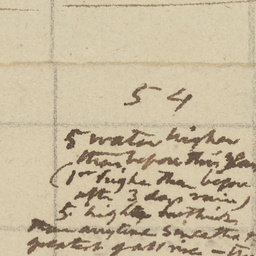 54
5 water higher
than before this year
(1 in higher than before
after 3 days rain)
5 higher
than any time since the
greatest of all rise -